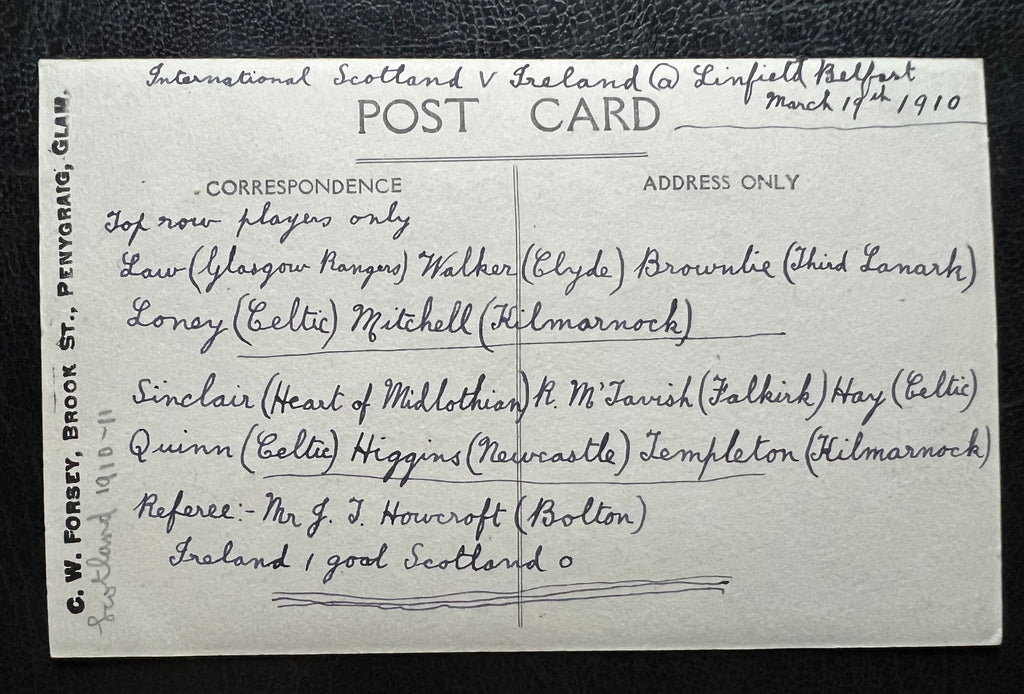 International Scotland V Ireland @ Linfield Belfast
March 19th 1910
POST CARD
CORRESPONDENCE
ADDRESS ONLY
Top row players only
Law (Glasgow Rangers) Walker (Clyde) Brownlie (Third Lanark)
Loney (Celtic) Mitchell (Kilmarnock)
Sinclair (Heart of Midlothian) R. M'Tavish (Falkirk) Hay (Celtic)
Quinn (Celtic) Higgins (Newcastle) Templeton (Kilmarnock)
Referee:- Mr J. T. Howcroft (Bolton)
Ireland 1 goal Scotland 0
C. W. FORSEY, BROOK ST., PENYGRAIG, GLAM.
Scotland 1910-11